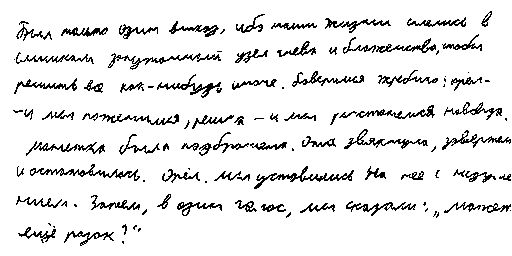 Был только один выход, ибо наши жизни сплелись в
слишком запутанный узел гнева и блаженства, чтобы
решить всё как-нибудь иначе. Доверимся жребию: орёл -
- и мы поженимся, решка - и мы расстанемся навсегда.
Монетка была подброшена. Она звякнула, завертел
и остановилась. Орёл. Мы уставились на неё с недоуме
нием. Затем, в один голос, мы сказали: „Может
ещё разок?“